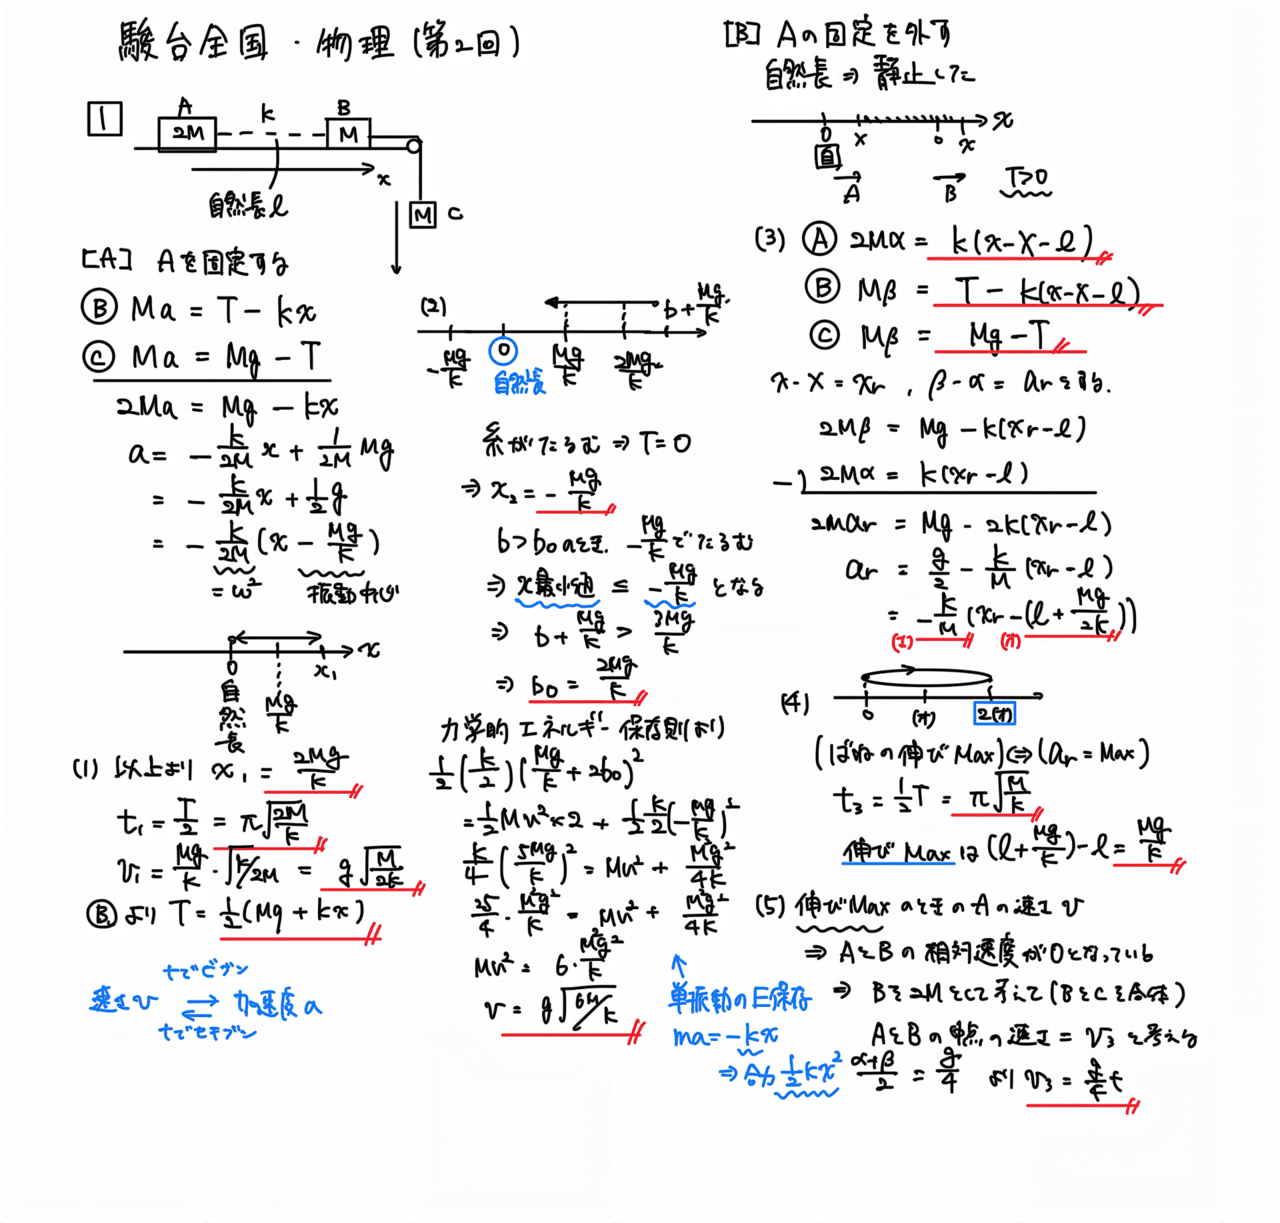 駿台全国・物理(第2回)
1
A
2M
k
B
M
x
自然長l
M C
[A] Aを固定する
Ⓑ Ma = T - kx
Ⓒ Ma = Mg - T
2Ma = Mg - kx
a = - k/2M x + 1/2M Mg
= - k/2M x + 1/2 g
= - k/2M (x - Mg/k)
= ω² 振動中心
0 Mg/k x₁ x
自然長
(1) 以上より x₁ = 2Mg/k
t₁ = T/2 = π√(2M/k)
v₁ = Mg/k · √(k/2M) = g√(M/2k)
Ⓑより T = 1/2 (Mg + kx)
tでビブン
速さv ⇄ 加速度a
tでセキブン
(2)
b + Mg/k
-Mg/k 0 Mg/k 2Mg/k
自然長
糸がたるむ ⇒ T = 0
⇒ x₂ = - Mg/k
b > b₀のとき, - Mg/k でたるむ
⇒ x最小値 ≤ - Mg/k となる
⇒ b + Mg/k > 3Mg/k
⇒ b₀ = 2Mg/k
力学的エネルギー保存則より
1/2 (k/2) (Mg/k + 2b₀)²
= 1/2 Mu² × 2 + 1/2 k/2 (- Mg/k)²
k/4 (5Mg/k)² = Mu² + M²g²/4k
25/4 · M²g²/k = Mu² + M²g²/4k
Mu² = 6 · M²g²/k
v = g√(6M/k)
↑
単振動のE保存
ma = -kx
⇒ 合力 1/2 kx²
[B] Aの固定を外す
自然長 ⇒ 静止した
0 X 0 x x
自
A B T>0
(3) Ⓐ 2Mα = k(x - X - l)
Ⓑ Mβ = T - k(x - X - l)
Ⓒ Mβ = Mg - T
x - X = xr , β - α = ar とする.
2Mβ = Mg - k(xr - l)
-) 2Mα = k(xr - l)
2Mar = Mg - 2k(xr - l)
ar = g/2 - k/M (xr - l)
= - k/M (xr - (l + Mg/2k))
(エ) (オ)
(4)
0 (オ) 2(オ)
(ばねの伸びMax) ⇔ (ar = Max)
t₃ = 1/2 T = π√(M/k)
伸びMaxは (l + Mg/k) - l = Mg/k
(5) 伸びMaxのときのAの速さv
⇒ AとBの相対速度が0となっている
⇒ Bを2Mとして考えて(BとCを合体)
AとBの重点の速さ = v₃ と考える
α+β/2 = g/4 より v₃ = g/4 t